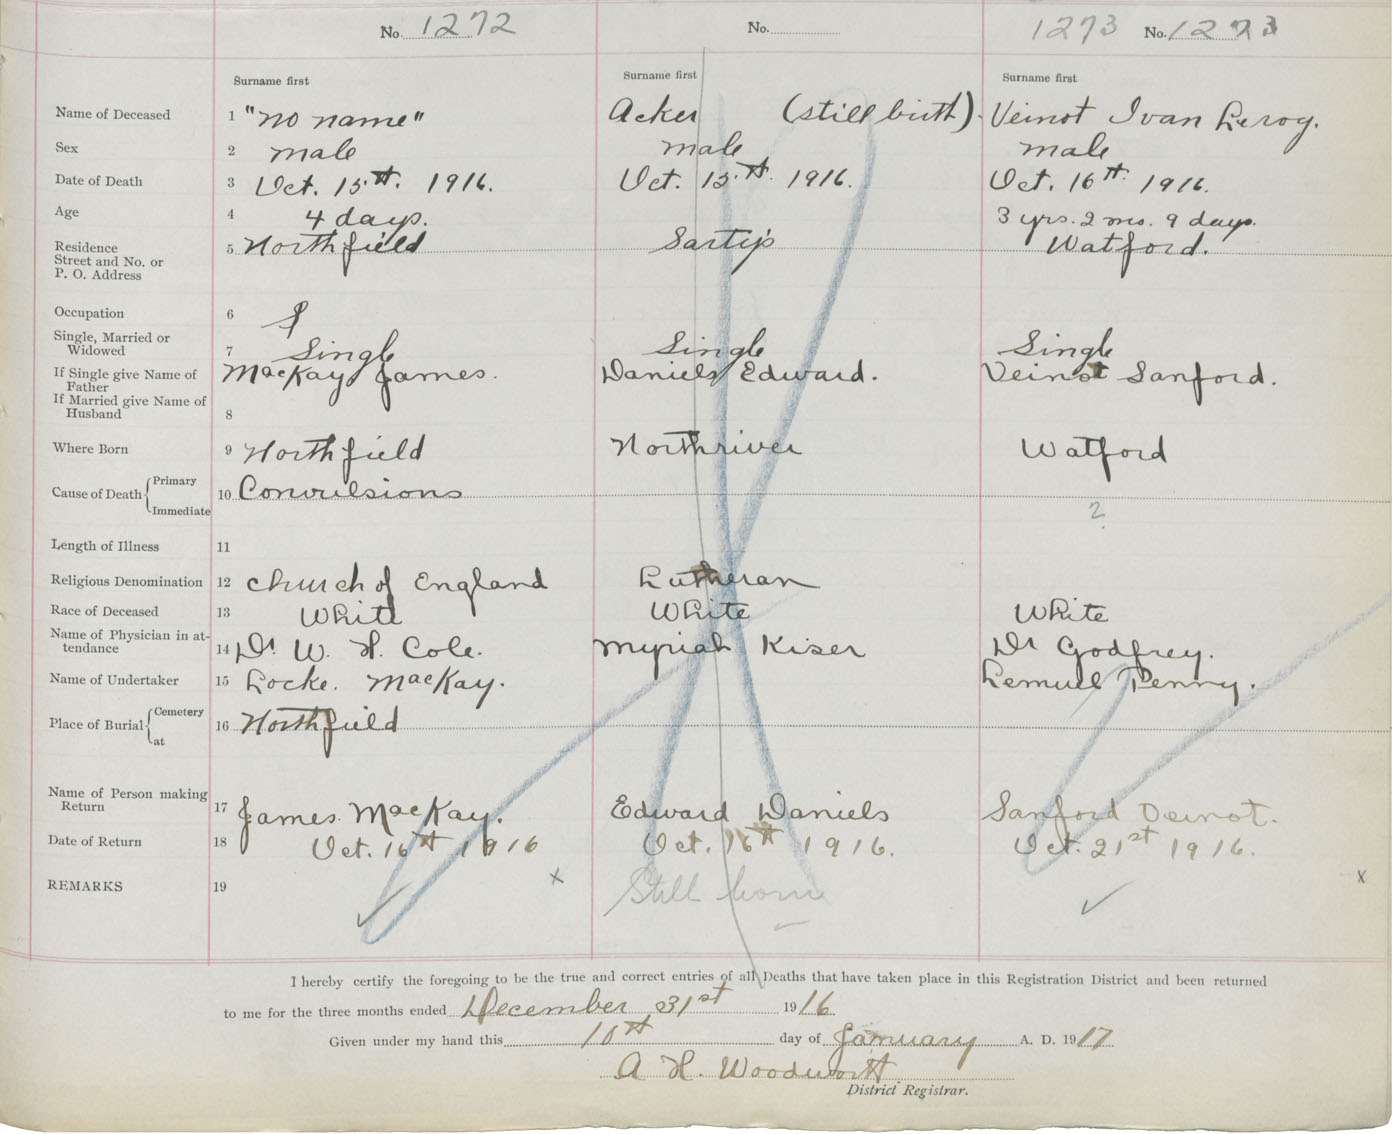 No. 1272 No. 1273 No. 1273
Surname first Surname first Surname first
Name of Deceased 1 "no name" Acker (still birth). Veinot Ivan Leroy.
Sex 2 male male male
Date of Death 3 Oct. 15th. 1916. Oct. 15th. 1916. Oct. 16th. 1916.
Age 4 4 days. 3 yrs. 2 mos. 9 days.
Residence 5 Northfield Watford.
Street and No. or
P. O. Address
Occupation 6
Single, Married or
Widowed 7 Single Single Single
If Single give Name of
Father MacKay James. Daniels Edward. Veinot Sanford.
If Married give Name of
Husband 8
Where Born 9 Northfield Northriver Watford
Cause of Death Primary
10 Convulsions
Immediate ?
Length of Illness 11
Religious Denomination 12 Church of England Lutheran
Race of Deceased 13 White White White
Name of Physician in at-
tendance 14 Dr W. H. Cole. Myriah Kiser Dr Godfrey.
Name of Undertaker 15 Locke. MacKay. Lemuel Penny.
Place of Burial Cemetery
16 Northfield
at
Name of Person making
Return 17 James MacKay. Edward Daniels Sanford Veinot.
Date of Return 18 Oct. 16th 1916 Oct. 16th 1916. Oct. 21st 1916.
REMARKS 19 x Still born x
I hereby certify the foregoing to be the true and correct entries of all Deaths that have taken place in this Registration District and been returned
to me for the three months ended December 31st 1916.
Given under my hand this 10th day of January A. D. 1917
A H. Woodworth
District Registrar.